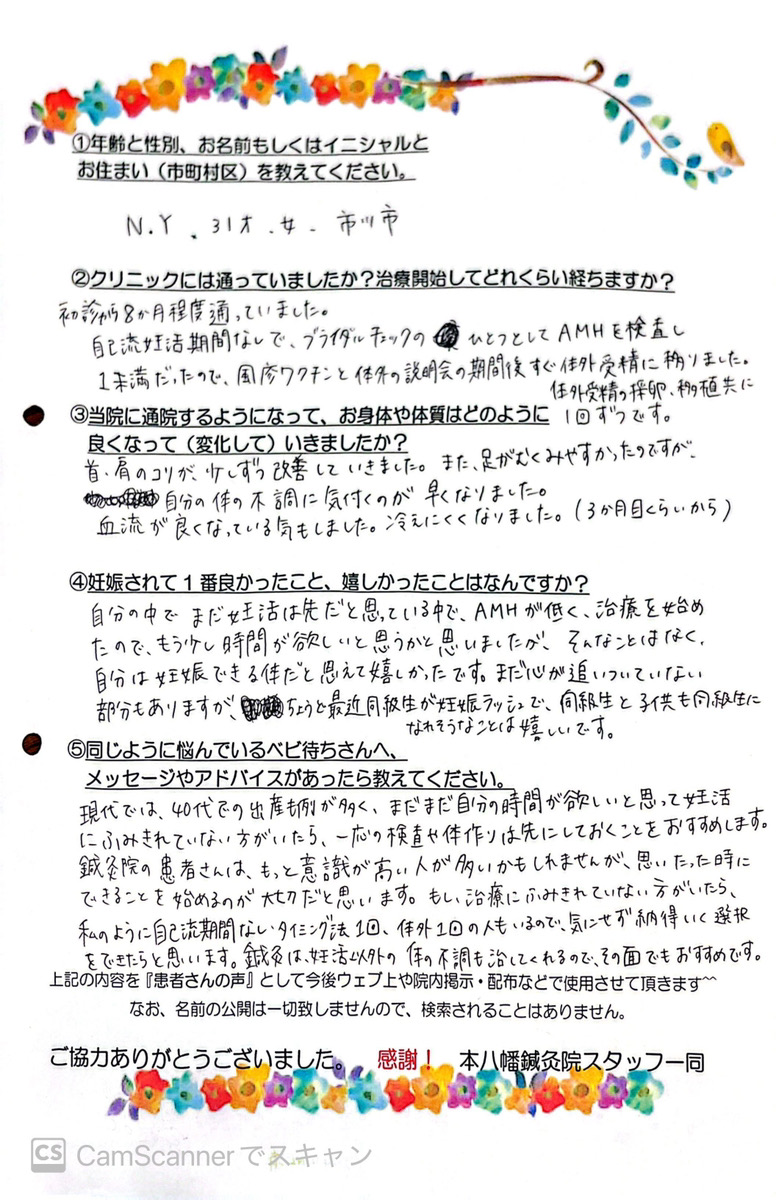 ①年齢と性別、お名前もしくはイニシャルと
お住まい（市町村区）を教えてください。
N.Y . 31才 . 女 - 市川市
②クリニックには通っていましたか？治療開始してどれくらい経ちますか？
初診から8か月程度通っていました。
自己流妊活期間なしで、ブライダルチェックの ひとつとしてAMHを検査し
1未満だったので、風疹ワクチンと体外の説明会の期間後すぐ体外受精に移りました。
体外受精の採卵、移植共に
1回ずつです。
③当院に通院するようになって、お身体や体質はどのように
良くなって（変化して）いきましたか？
首、肩のコリが、少しずつ改善していきました。また、足がむくみやすかったのですが、
自分の体の不調に気付くのが早くなりました。
血流が良くなっている気もしました。冷えにくくなりました。（3か月目くらいから）
④妊娠されて１番良かったこと、嬉しかったことはなんですか？
自分の中でまだ妊活は先だと思っている中で、AMHが低く、治療を始め
たので、もう少し時間が欲しいと思うかと思いましたが、そんなことはなく、
自分は妊娠できる体だと思えて嬉しかったです。まだ心が追いついていない
部分もありますが、ちょうど最近同級生が妊娠ラッシュで、同級生と子供も同級生に
なれそうなことは嬉しいです。
⑤同じように悩んでいるベビ待ちさんへ、
メッセージやアドバイスがあったら教えてください。
現代では、40代での出産も例が多く、まだまだ自分の時間が欲しいと思って妊活
にふみきれていない方がいたら、一応の検査や体作りは先にしておくことをおすすめします。
鍼灸院の患者さんは、もっと意識が高い人が多いかもしれませんが、思いたった時に
できることを始めるのが大切だと思います。もし、治療にふみきれていない方がいたら、
私のように自己流期間ないタイミング法1回、体外1回の人もいるので、気にせず納得いく選択
をできたらと思います。鍼灸は、妊活以外の体の不調も治してくれるので、その面でもおすすめです。
上記の内容を『患者さんの声』として今後ウェブ上や院内掲示・配布などで使用させて頂きます^^
なお、名前の公開は一切致しませんので、検索されることはありません。
ご協力ありがとうございました。 感謝！ 本八幡鍼灸院スタッフ一同
CS CamScannerでスキャン